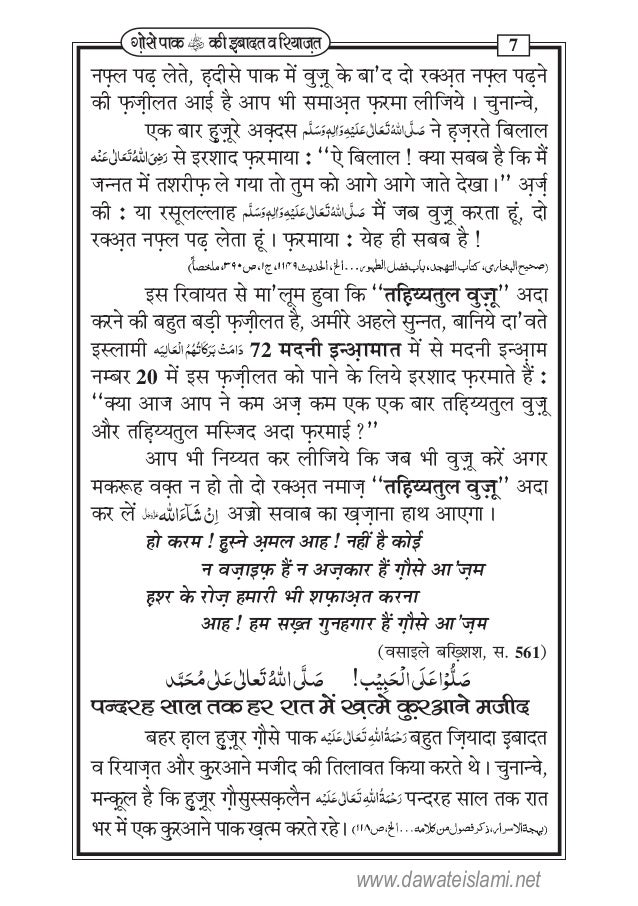 ग़ौसे पाक رضی اللہ عنہ की इबादत व रियाज़त 7
नफ़्ल पढ़ लेते, ह़दीसे पाक में वुज़ू के बा'द दो रक्अ़त नफ़्ल पढ़ने
की फ़ज़ीलत आई है आप भी समाअ़त फ़रमा लीजिये । चुनान्चे,
एक बार हुज़ूरे अक़्दस صَلَّى اللهُ تَعَالٰى عَلَيْهِ وَاٰلِهٖ وَسَلَّم ने ह़ज़रते बिलाल
رَضِىَ اللهُ تَعَالٰى عَنْهُ से इरशाद फ़रमाया : ‘‘ऐ बिलाल ! क्या सबब है कि मैं
जन्नत में तशरीफ़ ले गया तो तुम को आगे आगे जाते देखा ।’’ अ़र्ज़
की : या रसूलल्लाह صَلَّى اللهُ تَعَالٰى عَلَيْهِ وَاٰلِهٖ وَسَلَّم मैं जब वुज़ू करता हूं, दो
रक्अ़त नफ़्ल पढ़ लेता हूं । फ़रमाया : येह ही सबब है !
(صحیح البخاری، کتاب التهجد، باب فضل الطهور...الخ، الحدیث ۱۱۴۹، ج۱، ص۳۹۰، ملخصاً)
इस रिवायत से मा'लूम हुवा कि ‘‘तह़िय्यतुल वुज़ू’’ अदा
करने की बहुत बड़ी फ़ज़ीलत है, अमीरे अहले सुन्नत, बानिये दा'वते
इस्लामी دَامَتْ بَرَكَاتُهُمُ الْعَالِيَه 72 मदनी इन्आ़मात में से मदनी इन्आ़म
नम्बर 20 में इस फ़ज़ीलत को पाने के लिये इरशाद फ़रमाते हैं :
‘‘क्या आज आप ने कम अज़ कम एक एक बार तह़िय्यतुल वुज़ू
और तह़िय्यतुल मस्जिद अदा फ़रमाई ?’’
आप भी निय्यत कर लीजिये कि जब भी वुज़ू करें अगर
मकरूह वक़्त न हो तो दो रक्अ़त नमाज़ ‘‘तह़िय्यतुल वुज़ू’’ अदा
कर लें اِنْ شَآءَ الله अज्रो सवाब का ख़ज़ाना हाथ आएगा ।
हो करम ! हुस्ने अ़मल आह ! नहीं है कोई
न वज़ाइफ़ हैं न अज़कार हैं ग़ौसे आ'ज़म
ह़श्र के रोज़ हमारी भी शफ़ाअ़त करना
आह ! हम सख़्त गुनहगार हैं ग़ौसे आ'ज़म
(वसाइले बख़्शिश, स. 561)
صَلُّوْا عَلَى الْحَبِيْب! صَلَّى اللهُ تَعَالٰى عَلٰى مُحَمَّد
पन्दरह साल तक हर रात में ख़त्मे कुरआने मजीद
बहर ह़ाल हुज़ूर ग़ौसे पाक رَحْمَةُ اللهِ تَعَالٰى عَلَيْه बहुत ज़ियादा इबादत
व रियाज़त और कुरआने मजीद की तिलावत किया करते थे । चुनान्चे,
मन्कूल है कि हुज़ूर ग़ौसुस्सक़लैन رَحْمَةُ اللهِ تَعَالٰى عَلَيْه पन्दरह साल तक रात
भर में एक कुरआने पाक ख़त्म करते रहे । (بهجة الاسرار، ذکر فصول من کلامه...الخ، ص۱۱۸)
www.dawateislami.net